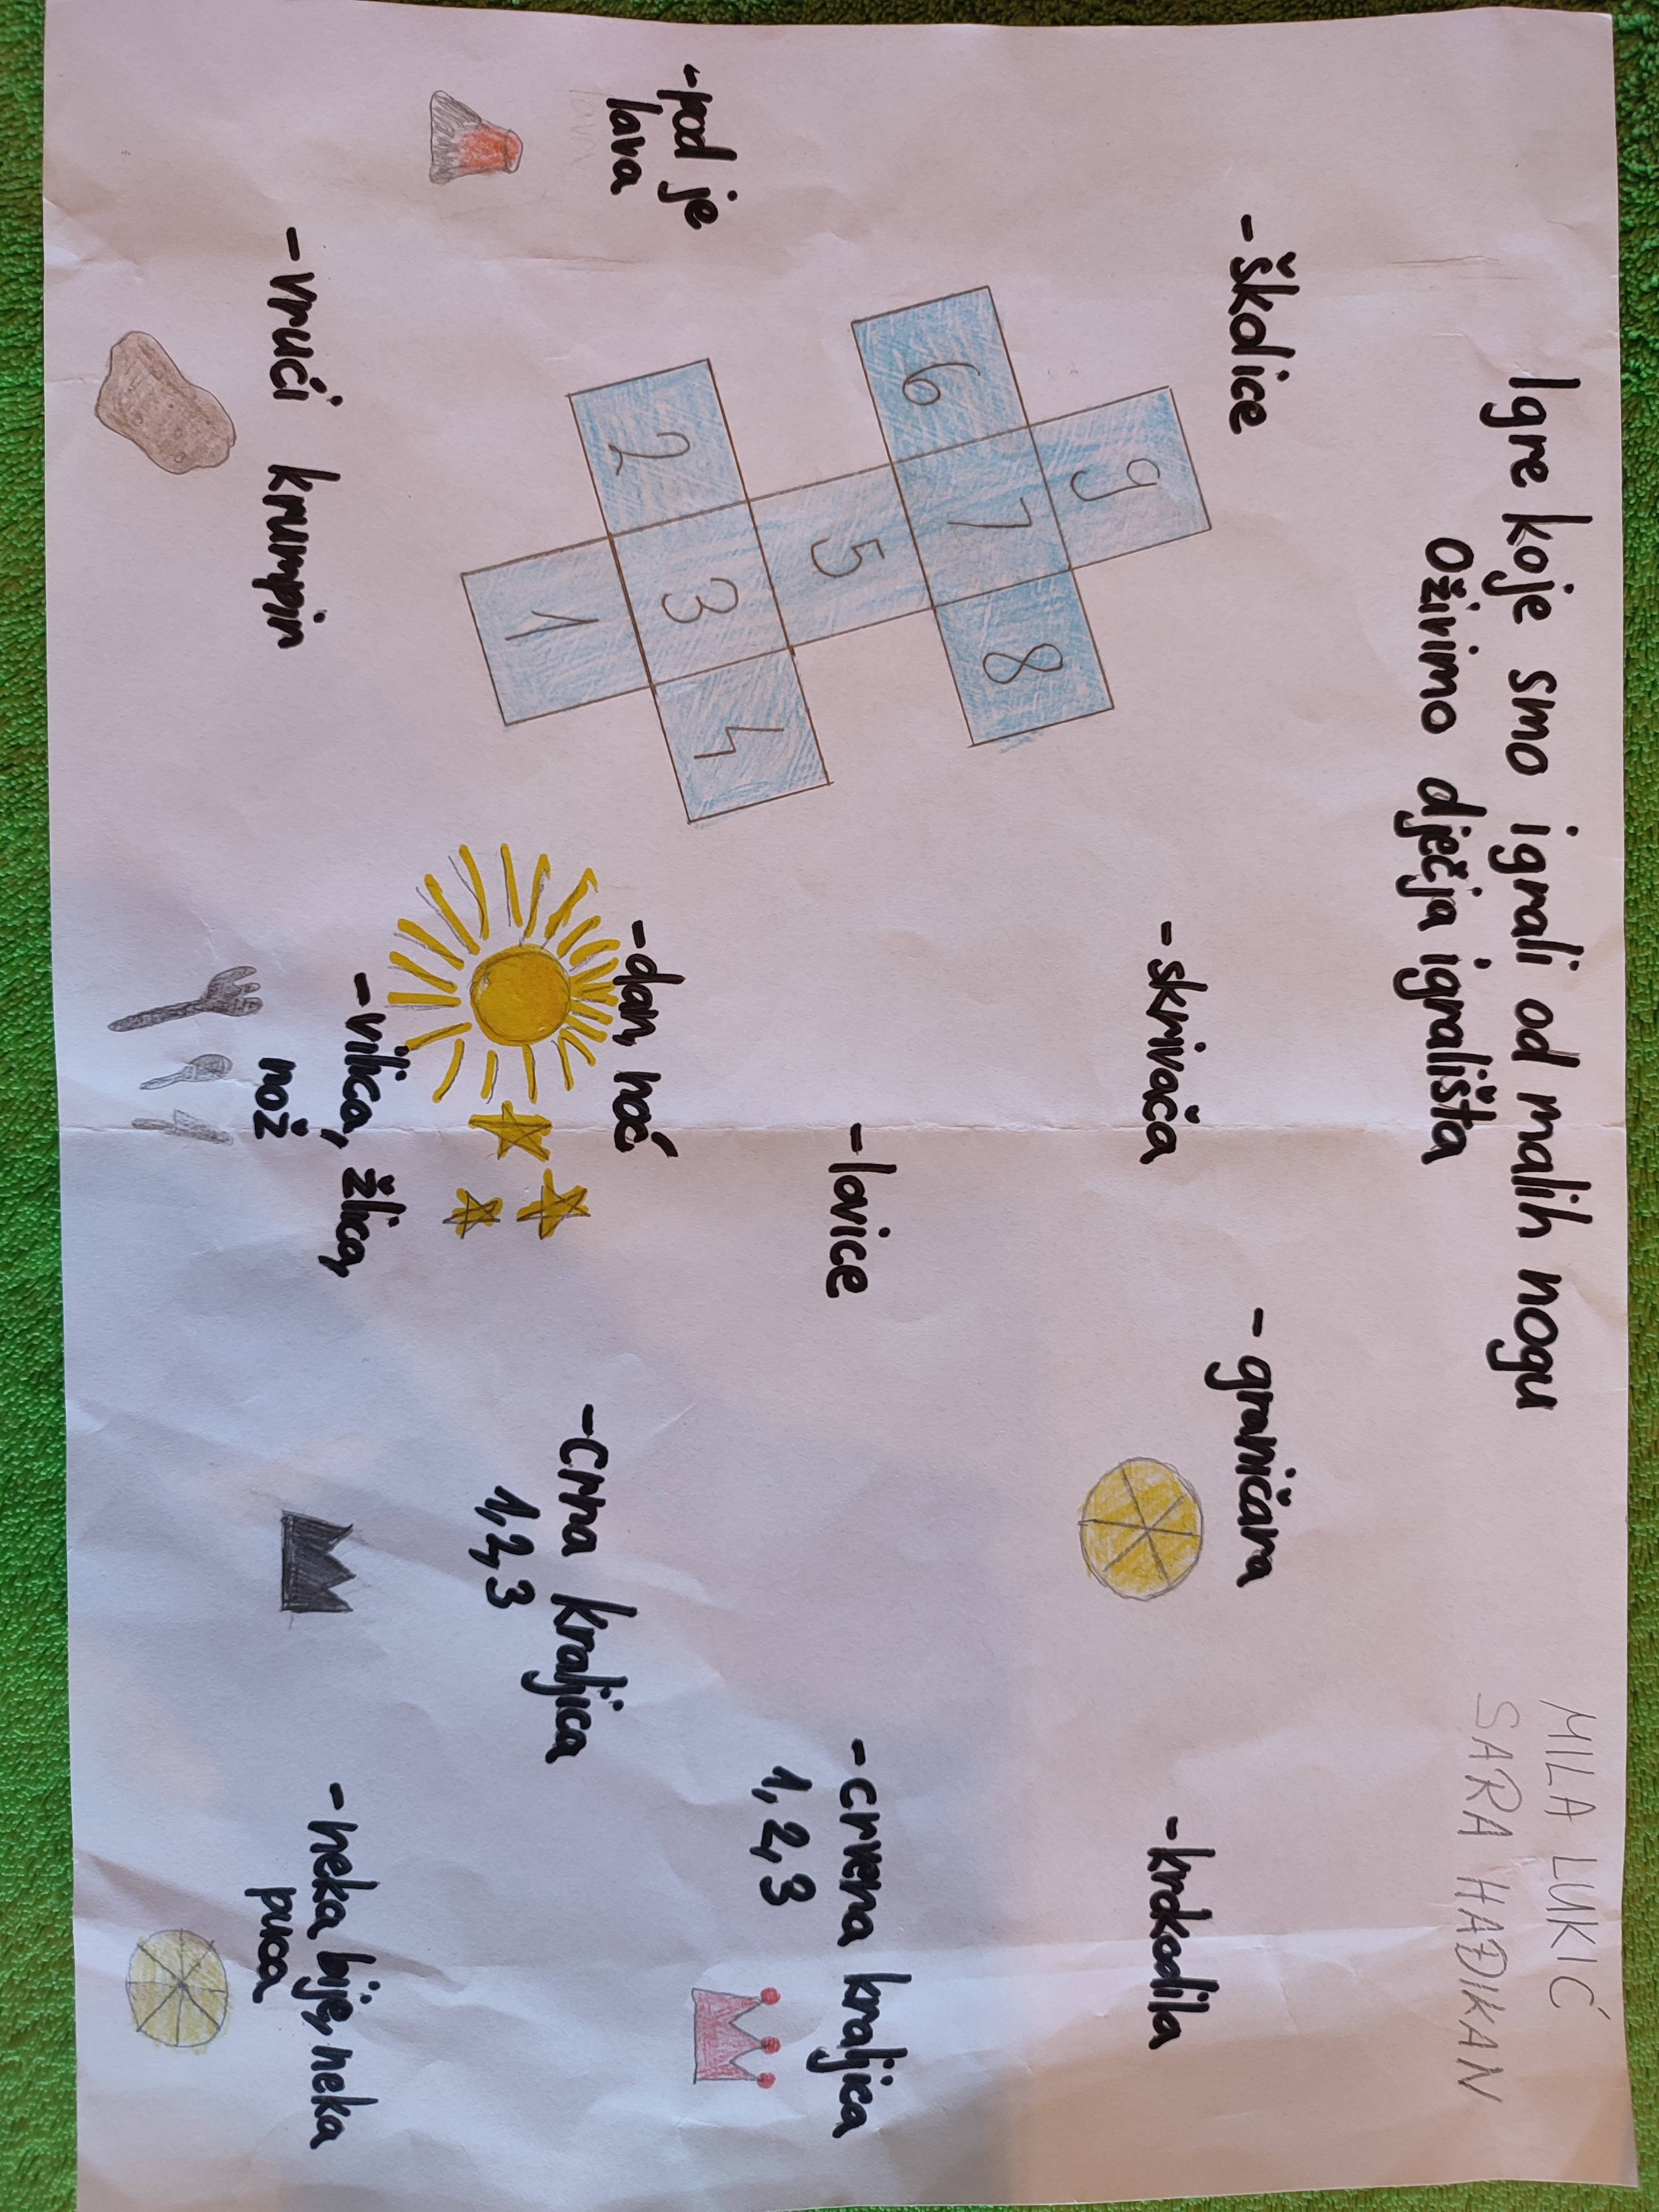 Igre koje smo igrali od malih nogu
Oživimo dječja igrališta
MILA LUKIĆ
SARA HAĐIKAN
-školice
-skrivača
- graničara
-krokodila
9
6 7 8
5
2 3 4
1
-lovice
-crvena kraljica
1, 2, 3
-pod je
lava
-dan, noć
-crna kraljica
1, 2, 3
-vrući krumpir
-vilica, žlica,
nož
-neka bije, neka
puca